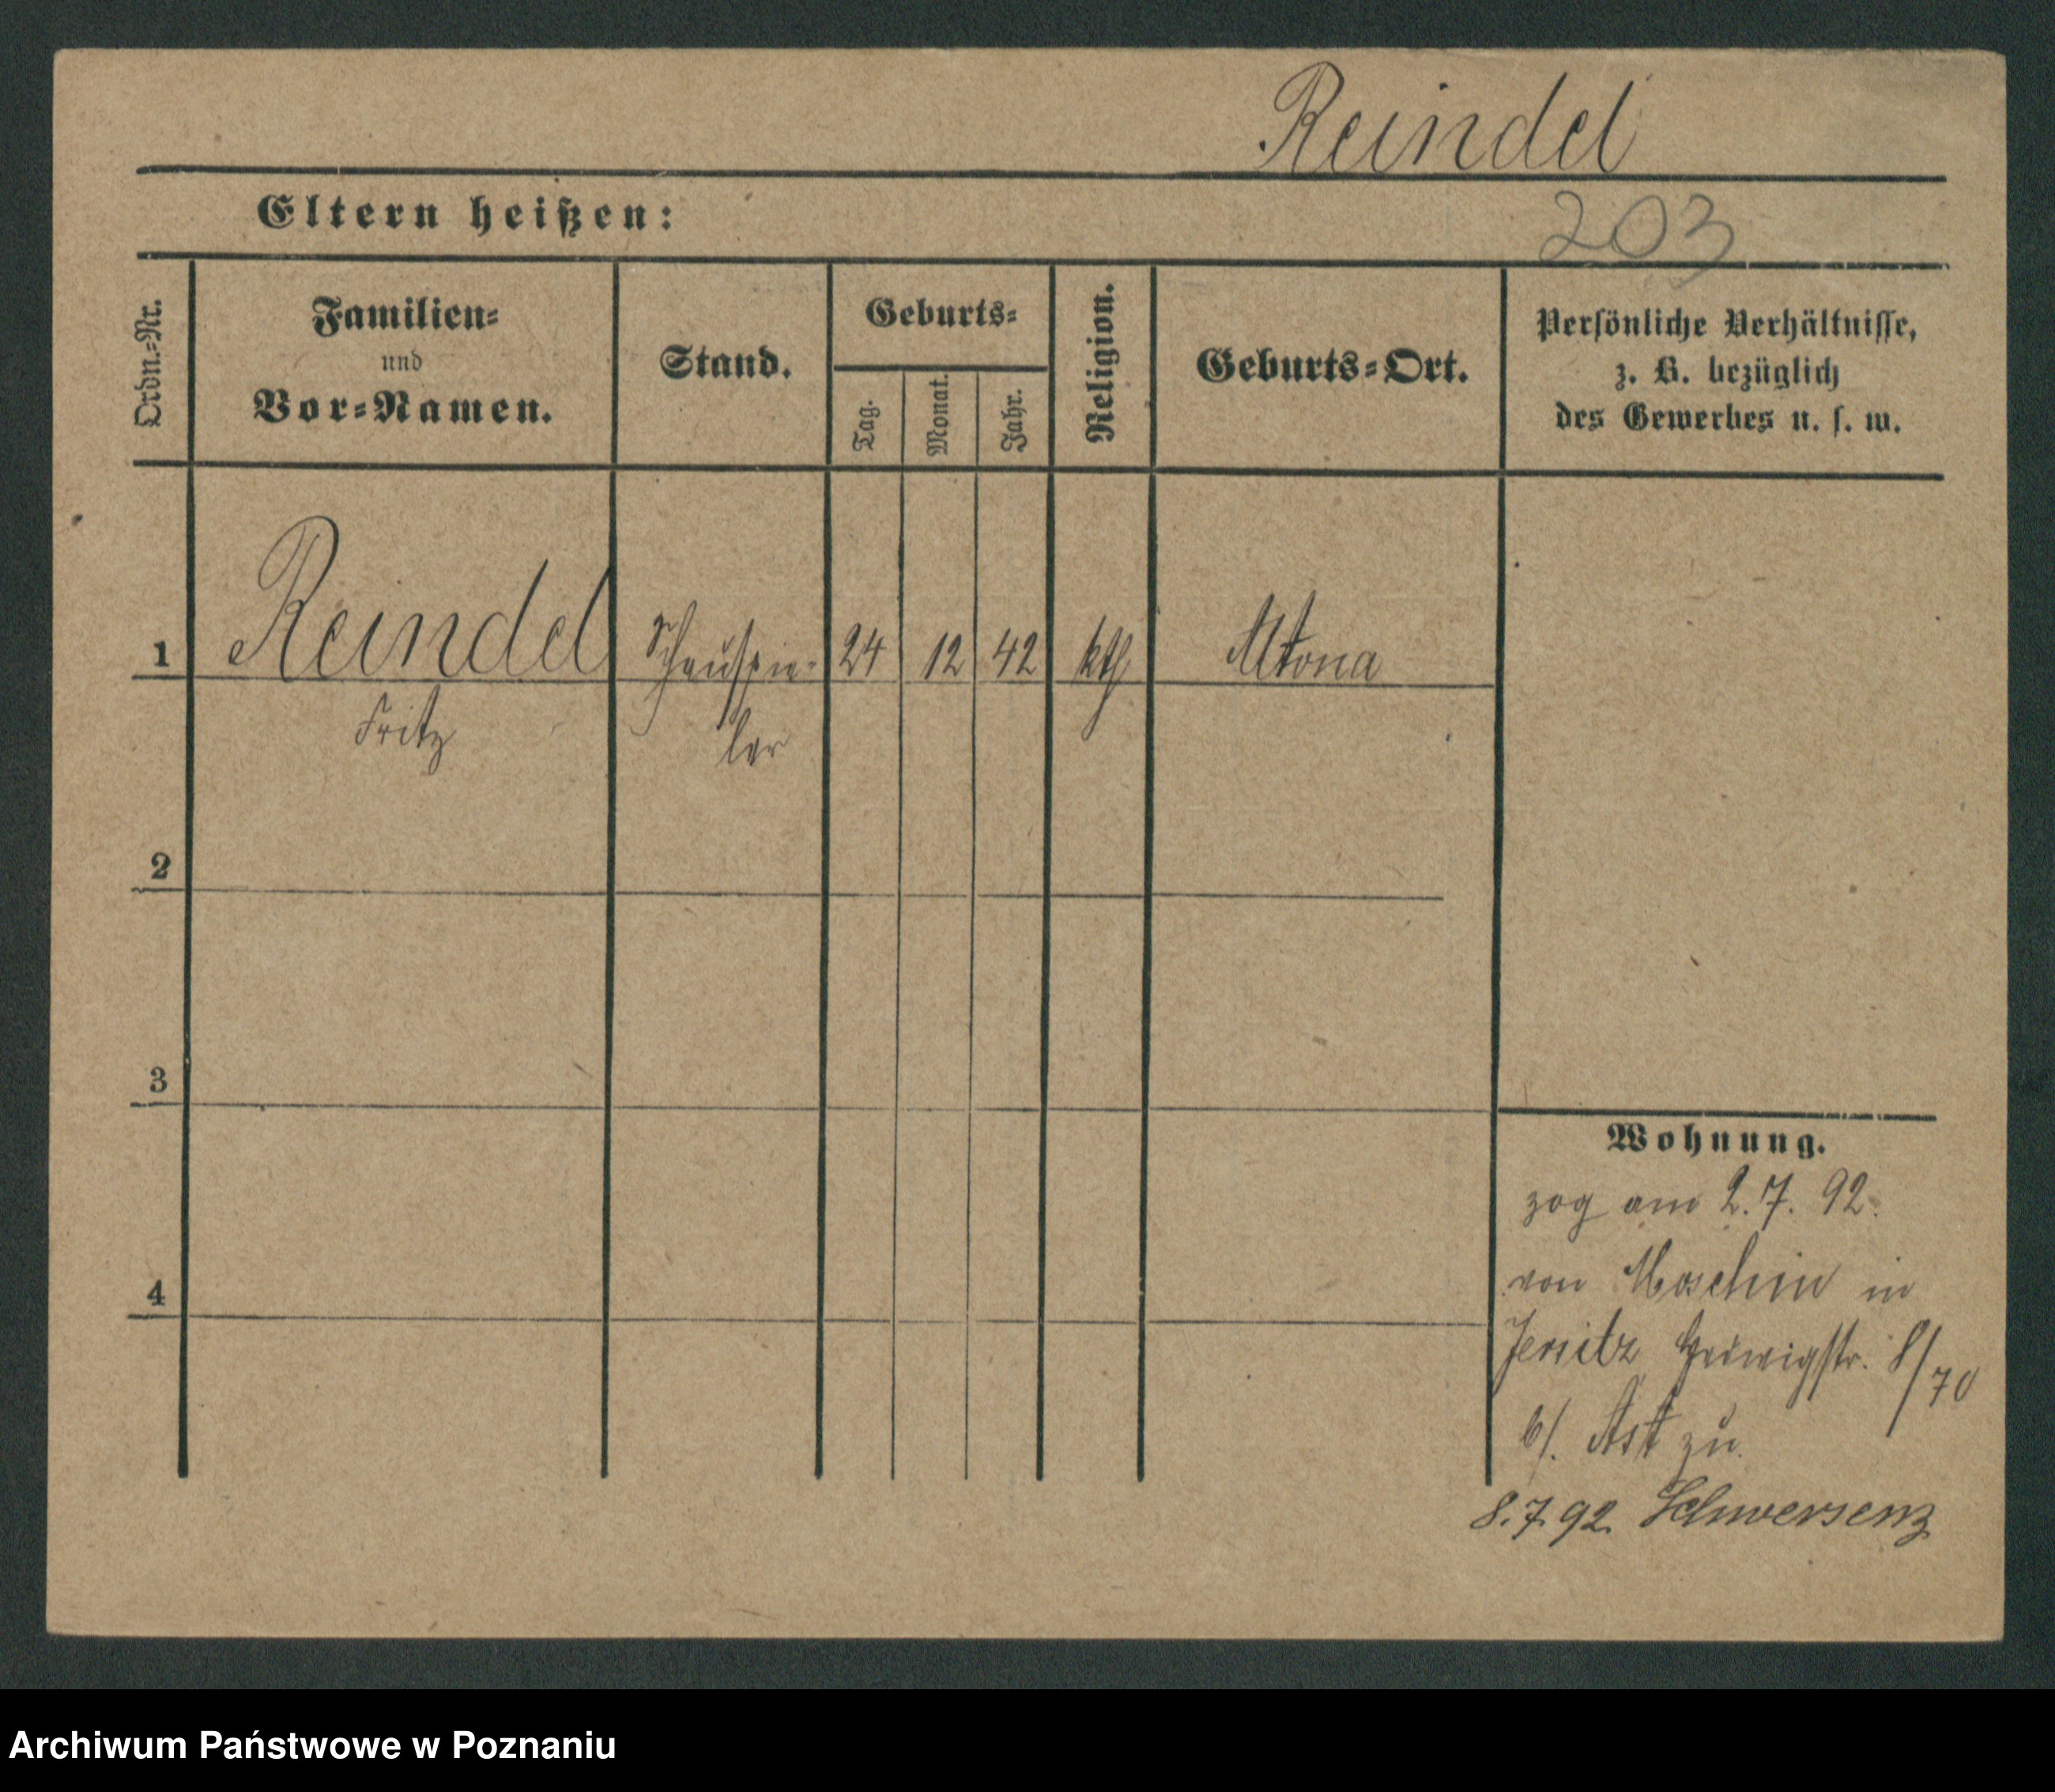 Reindel
Eltern heißen:
203
Ordn.-Nr.
Familien-
und
Vor-Namen.
Stand.
Geburts-
Tag.
Monat.
Jahr.
Religion.
Geburts-Ort.
Persönliche Verhältnisse,
z. B. bezüglich
des Gewerbes u. s. w.
1 Reindel Schauspie- 24 12 42 kth Altona
Fritz ler
2
3
4
Wohnung.
zog am 2.7. 92.
von Moschin in
Jersitz Hedwigstr. 8/70
b/. Ast zu.
8.7.92. Schwersenz
Archiwum Państwowe w Poznaniu